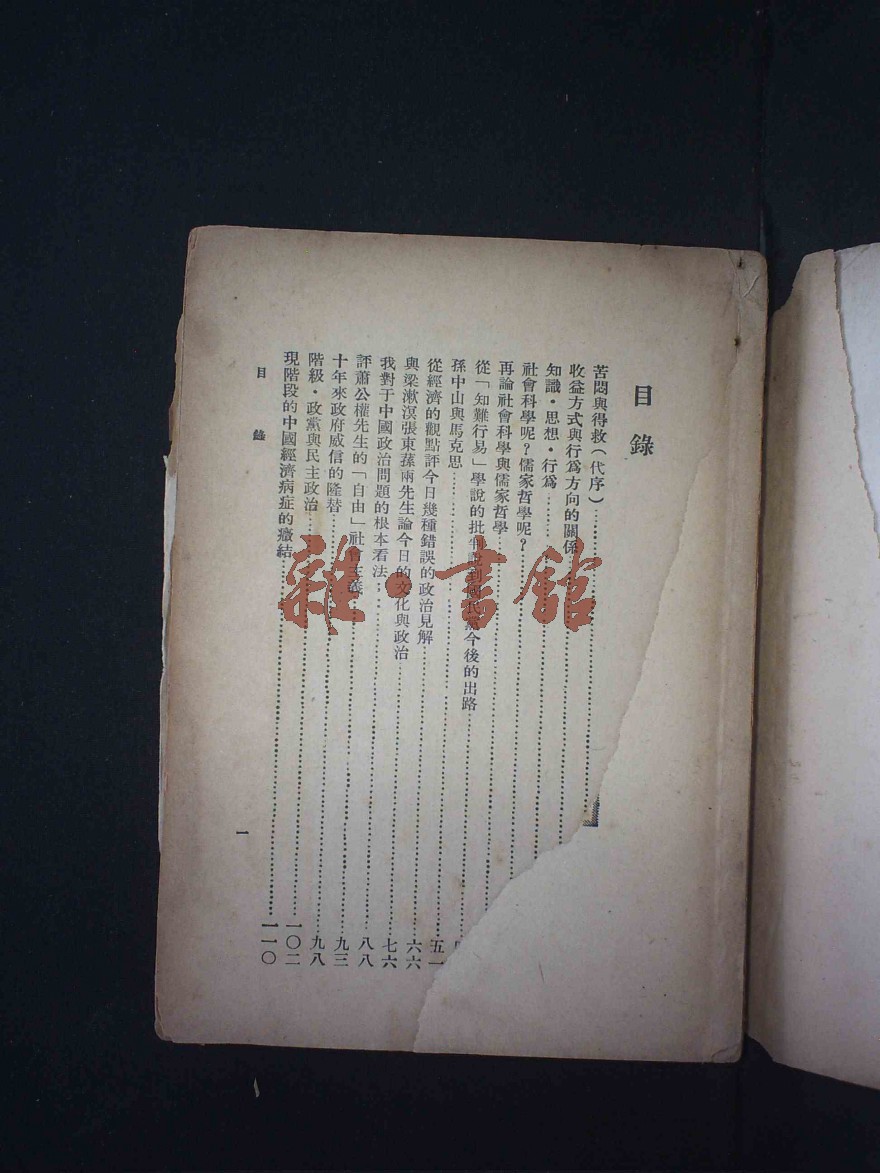 目錄
苦悶與得救（代序）
收益方式與行爲方向的關係
知識・思想・行爲
社會科學呢？儒家哲學呢？
再論社會科學與儒家哲學
從「知難行易」學說的批判說到國民黨今後的出路
孫中山與馬克思……五一
從經濟的觀點評今日幾種錯誤的政治見解……六六
與梁漱溟張東蓀兩先生論今日的文化與政治……七六
我對于中國政治問題的根本看法……八八
評蕭公權先生的「自由」社會主義……九三
十年來政府威信的隆替……九八
階級・政黨與民主政治……一〇二
現階段的中國經濟病症的癥結……一一〇
目錄
一
雜・書館